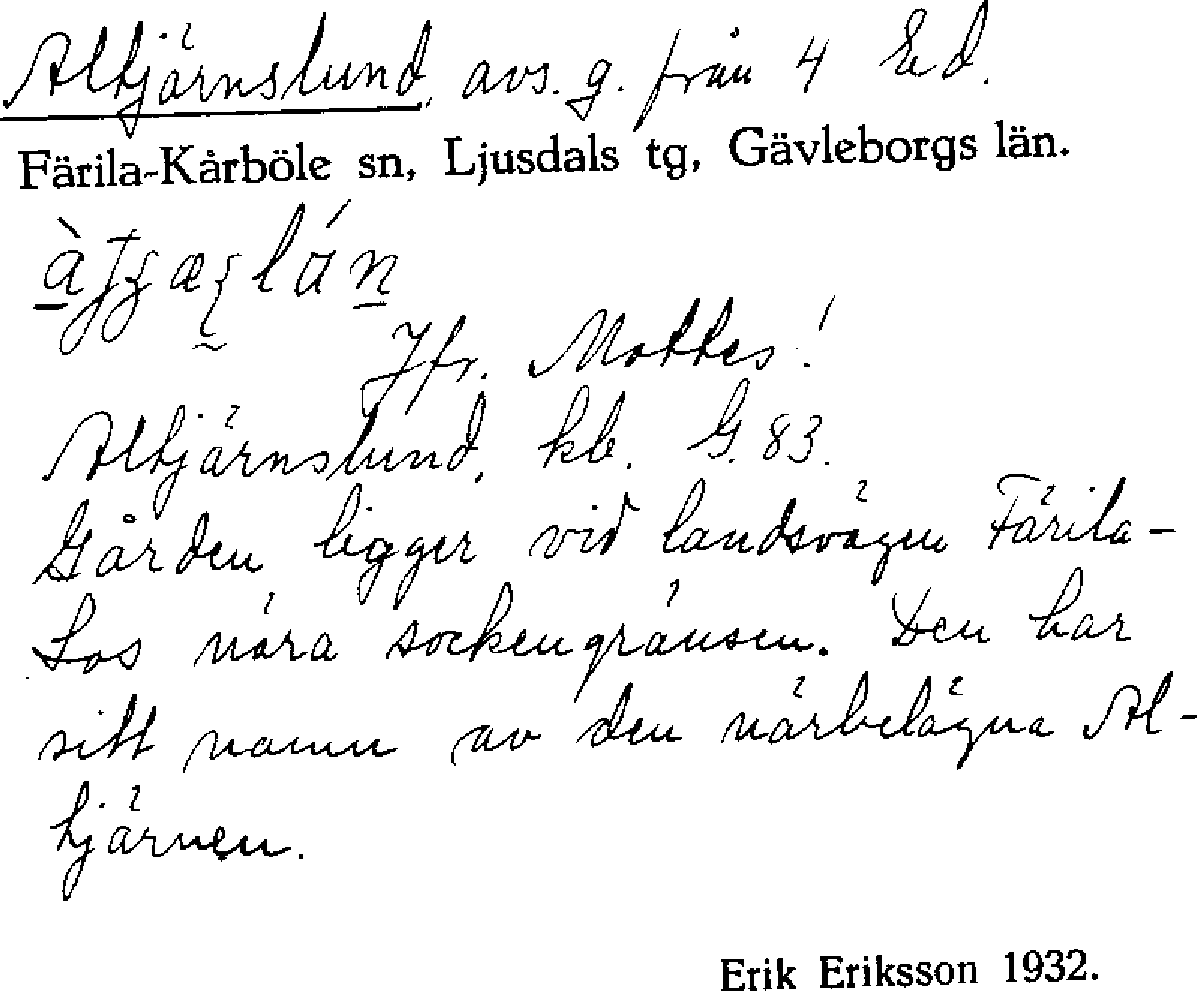 Altjärnslund, avs. g. från 4 Ed.
Färila-Kårböle sn, Ljusdals tg, Gävleborgs län.
Jfr. Mottes!
Altjärnslund, kb. G. 83.
Gården ligger vid landsvägen Färila-
Los nära sockengränsen. Den har
sitt namn av den närbelägna Al-
tjärnen.
Erik Eriksson 1932.